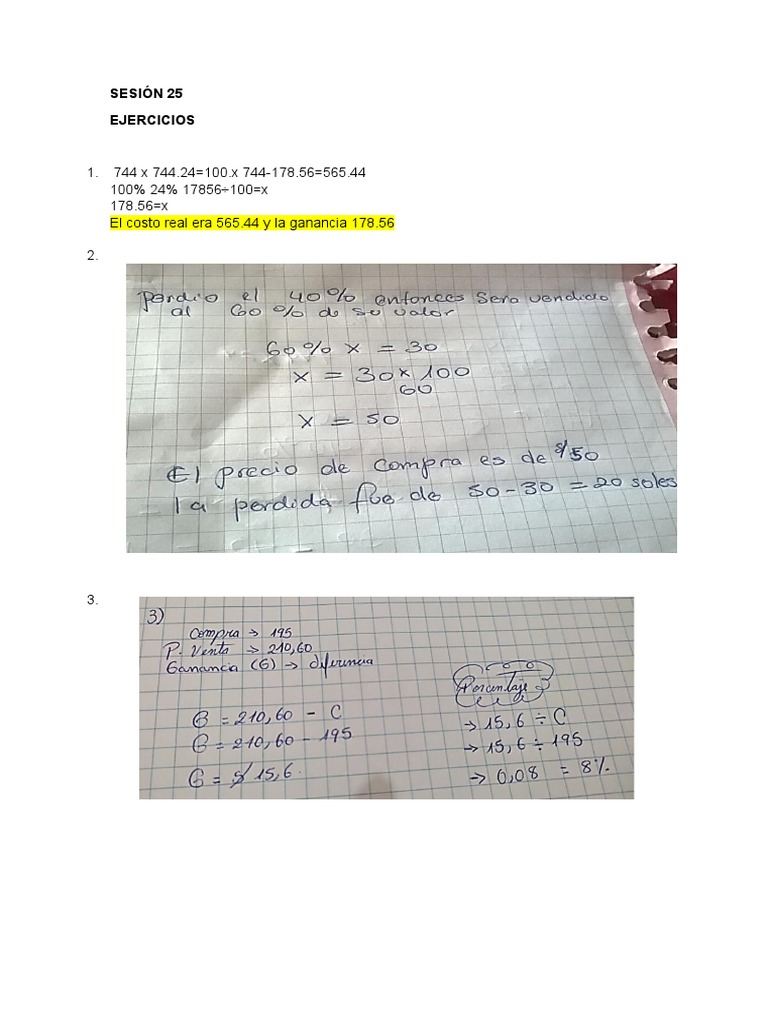 SESIÓN 25
EJERCICIOS
1. 744 x 744.24=100.x 744-178.56=565.44
100% 24% 17856÷100=x
178.56=x
El costo real era 565.44 y la ganancia 178.56
2.
Perdio el 40% entonces sera vendido
al 60% de su valor
60% x = 30
x = 30 x 100
60
x = 50
El precio de compra es de S/50
la perdida fue de 50-30 = 20 soles
3.
3)
Compra → 195
P. Venta → 210,60
Ganancia (G) → diferencia
G = 210,60 - C
G = 210,60 - 195
G = S/ 15,6.
Porcentaje
→ 15,6 ÷ C
→ 15,6 ÷ 195
→ 0,08 = 8%.